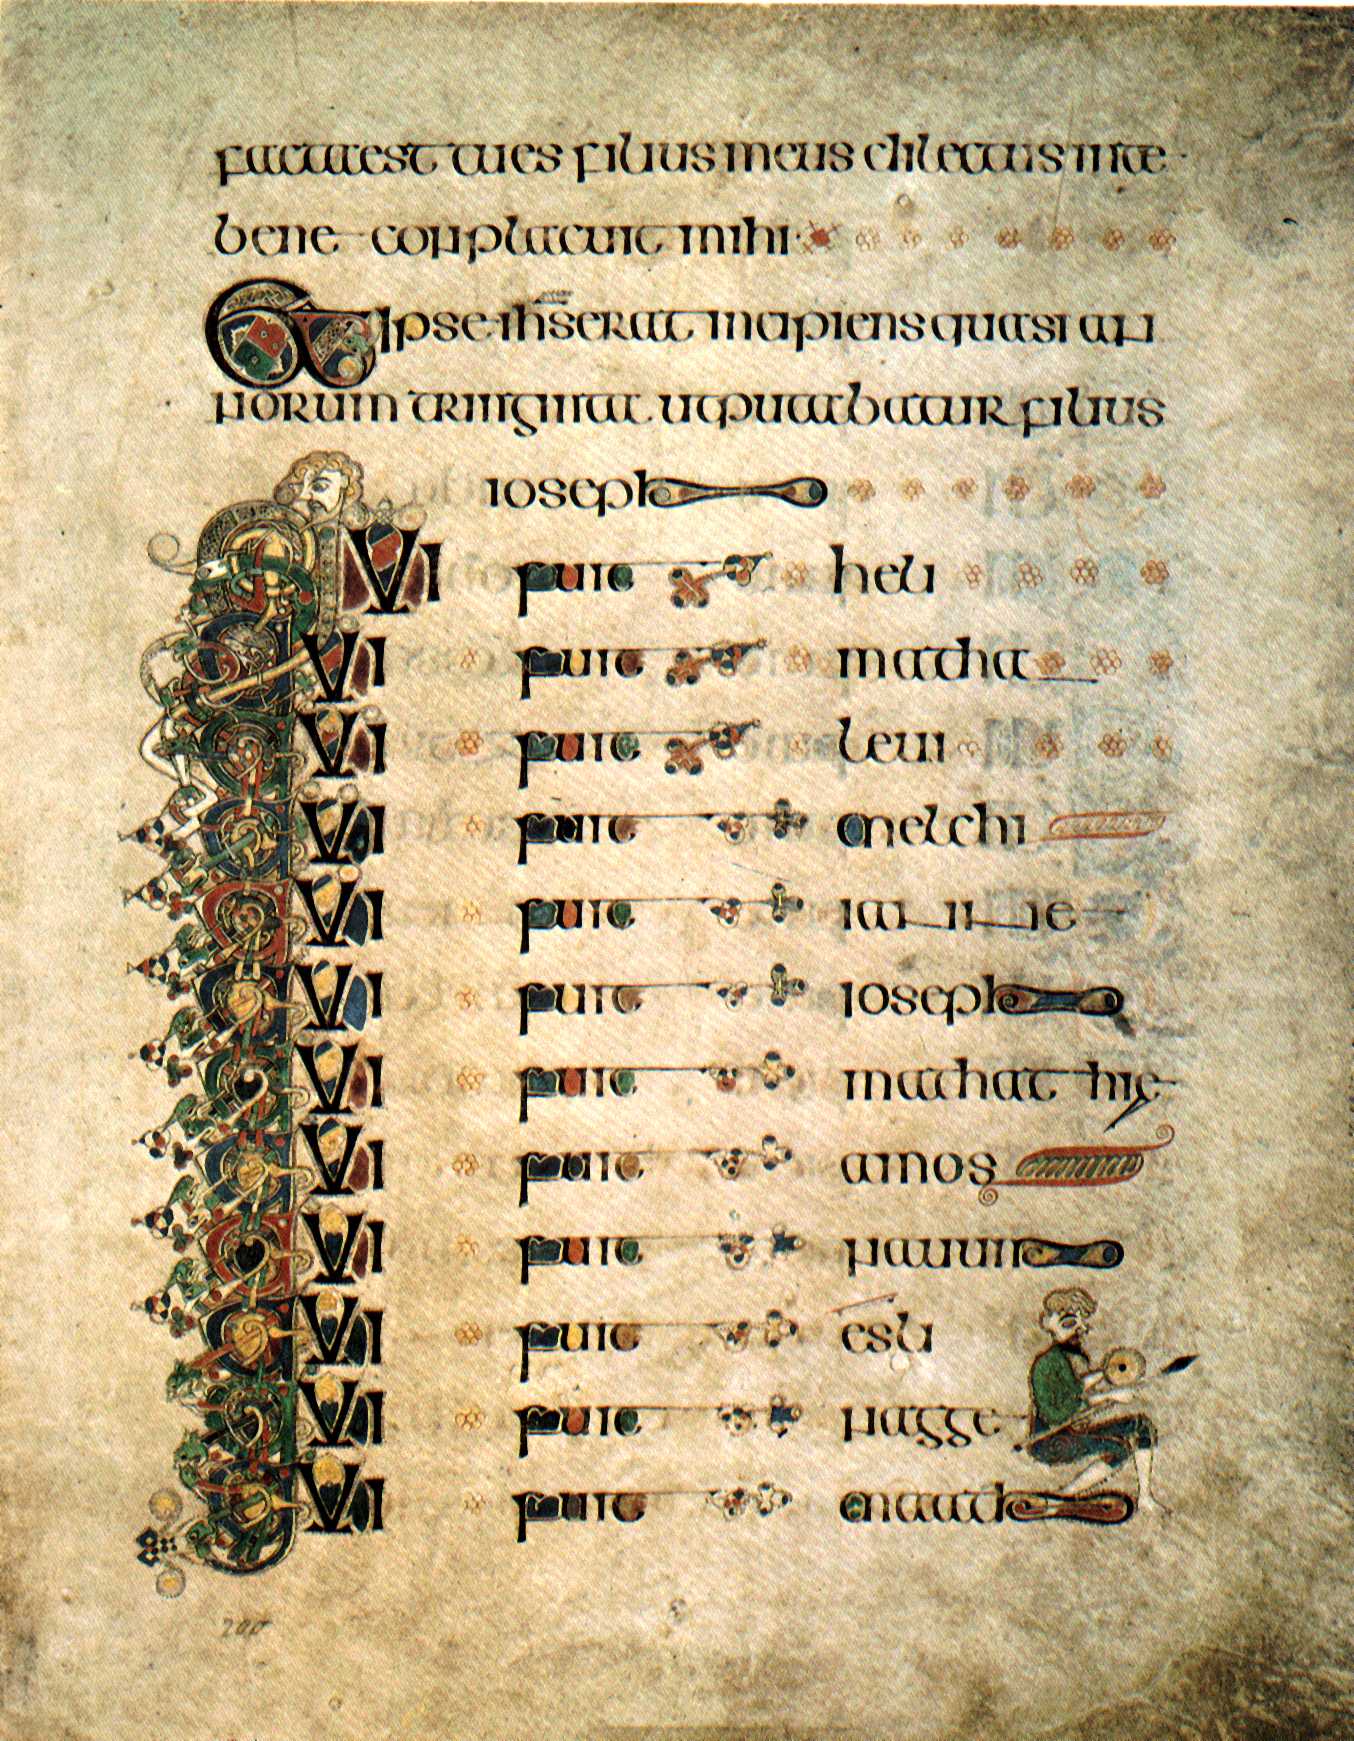 facta est tu es filius meus dilectus in te
bene conplacuit mihi
Et ipse ihs erat incipiens quasi an
norum triginta ut putabatur filius
ioseph
QVI fuit heli
QVI fuit matha
QVI fuit levi
QVI fuit melchi
QVI fuit iannae
QVI fuit ioseph
QVI fuit mathathie
QVI fuit amos
QVI fuit nauum
QVI fuit esli
QVI fuit nagge
QVI fuit maath
200